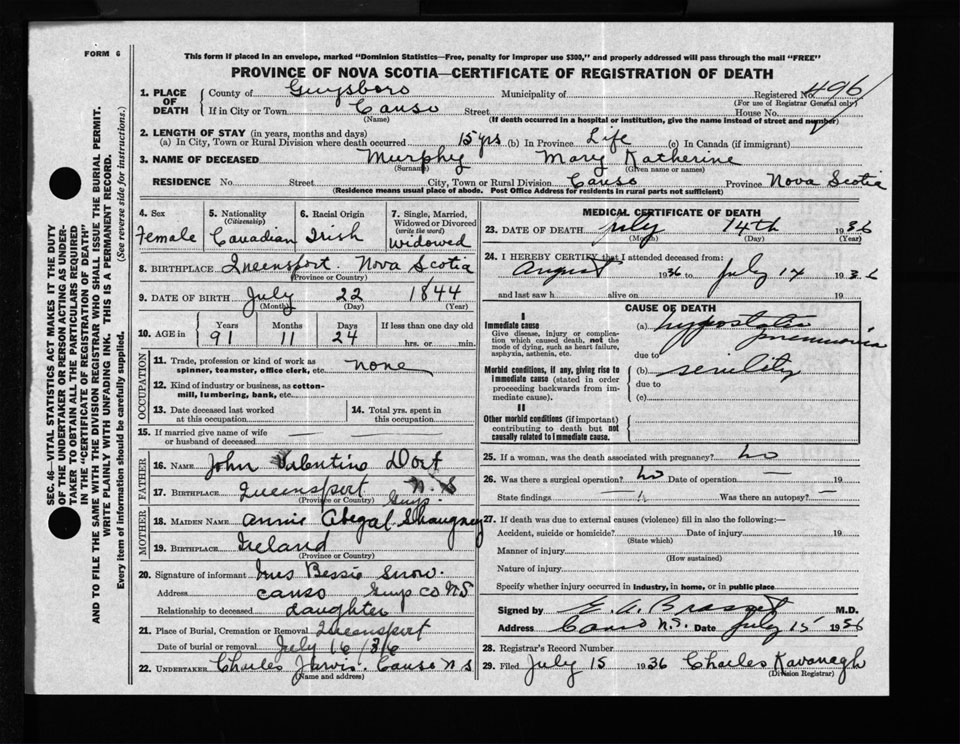 FORM 6
This form if placed in an envelope, marked "Dominion Statistics—Free, penalty for improper use $300," and properly addressed will pass through the mail "FREE"
PROVINCE OF NOVA SCOTIA—CERTIFICATE OF REGISTRATION OF DEATH
1. PLACE OF DEATH
County of Guysboro Municipality of Registered No. 496
(For use of Registrar General only)
If in City or Town Canso Street House No.
(Name) (If death occurred in a hospital or institution, give the name instead of street and number)
2. LENGTH OF STAY (in years, months and days)
(a) In City, Town or Rural Division where death occurred 15 yrs (b) In Province Life (c) In Canada (if immigrant)
3. NAME OF DECEASED Murphy Mary Katherine
(Surname) (Given name or names)
RESIDENCE No. Street City, Town or Rural Division Canso Province Nova Scotia
(Residence means usual place of abode. Post Office Address for residents in rural parts not sufficient)
4. Sex
Female
5. Nationality
(Citizenship)
Canadian
6. Racial Origin
Irish
7. Single, Married, Widowed or Divorced
(write the word)
Widowed
8. BIRTHPLACE Queensport Nova Scotia
(Province or Country)
9. DATE OF BIRTH July 22 1844
(Month) (Day) (Year)
10. AGE in Years Months Days If less than one day old
91 11 24 hrs. or min.
OCCUPATION
11. Trade, profession or kind of work as
spinner, teamster, office clerk, etc. none
12. Kind of industry or business, as cotton-
mill, lumbering, bank, etc.
13. Date deceased last worked
at this occupation
14. Total yrs. spent in
this occupation
15. If married give name of wife
or husband of deceased — —
FATHER
16. NAME John Valentine Dort
17. BIRTHPLACE Queensport Guys. N.S
(Province or Country)
MOTHER
18. MAIDEN NAME Annie Abegal Shaugney
19. BIRTHPLACE Ireland
(Province or Country)
20. Signature of informant Mrs Bessie Snow.
Address Canso Guys Co N.S
Relationship to deceased daughter
21. Place of Burial, Cremation or Removal Queensport
Date of burial or removal July 16/36
22. UNDERTAKER Charles Jarvis. Canso N S
(Name and address)
MEDICAL CERTIFICATE OF DEATH
23. DATE OF DEATH July 14th 1936
(Month) (Day) (Year)
24. I HEREBY CERTIFY that I attended deceased from:
August 1936 to July 14 1936
and last saw h alive on 19
CAUSE OF DEATH
I
Immediate cause
Give disease, injury or complica-
tion which caused death, not the
mode of dying, such as heart failure,
asphyxia, asthenia, etc.
(a) hypostatic pneumonia
due to
Morbid conditions, if any, giving rise to
immediate cause (stated in order
proceeding backwards from im-
mediate cause).
(b) senility
due to
(c)
II
Other morbid conditions (if important)
contributing to death but not
causally related to immediate cause.
25. If a woman, was the death associated with pregnancy? No
26. Was there a surgical operation? No Date of operation —
State findings — Was there an autopsy? —
27. If death was due to external causes (violence) fill in also the following:—
Accident, suicide or homicide? Date of injury 19
(State which)
Manner of injury
(How sustained)
Nature of injury
Specify whether injury occurred in industry, in home, or in public place
Signed by E. A. Brasset M.D.
Address Canso N.S. Date July 15 1936
28. Registrar's Record Number
29. Filed July 15 1936 Charles Kavanagh
(Division Registrar)
SEC. 46—VITAL STATISTICS ACT MAKES IT THE DUTY
OF THE UNDERTAKER OR PERSON ACTING AS UNDER-
TAKER TO OBTAIN ALL THE PARTICULARS REQUIRED
IN THE "CERTIFICATE OF REGISTRATION OF DEATH"
AND TO FILE THE SAME WITH THE DIVISION REGISTRAR WHO SHALL ISSUE THE BURIAL PERMIT.
WRITE PLAINLY WITH UNFADING INK. THIS IS A PERMANENT RECORD.
Every item of information should be carefully supplied. (See reverse side for instructions.)